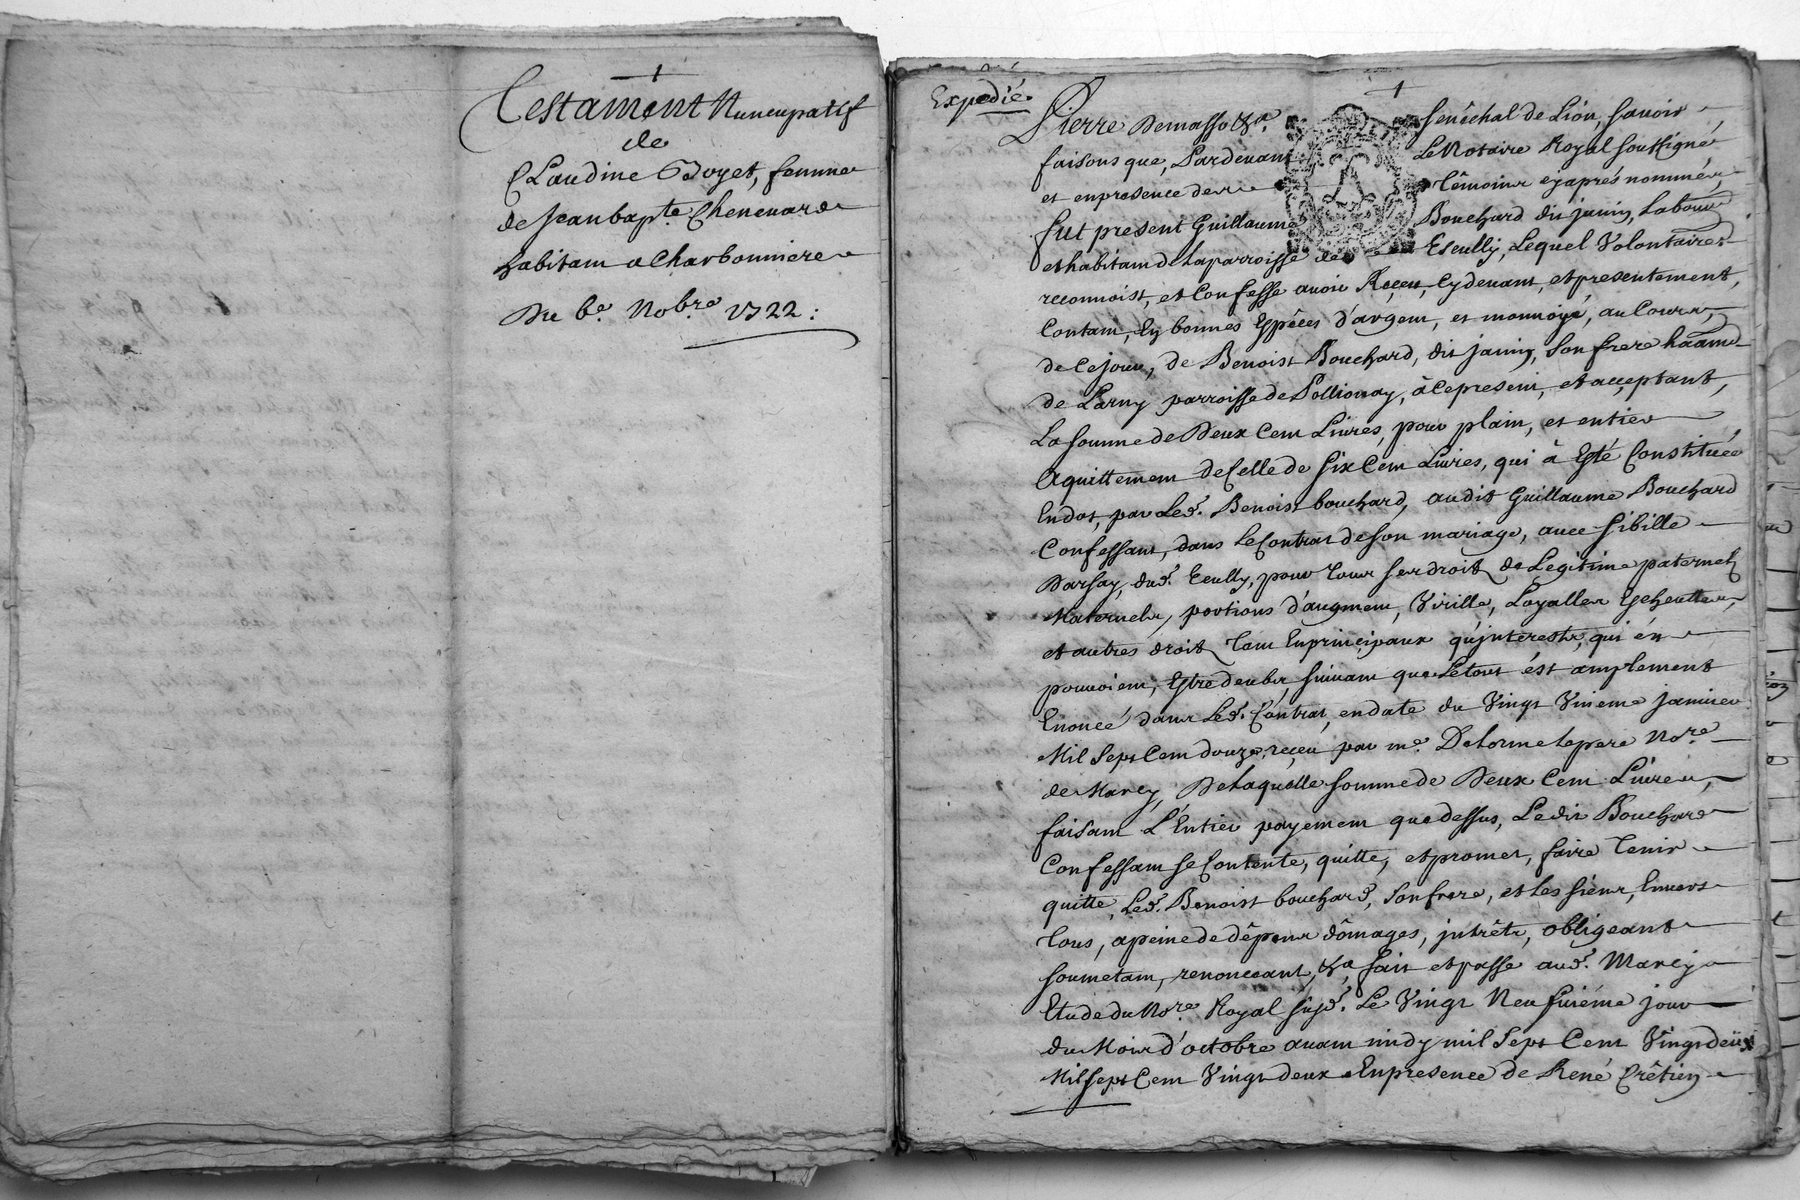 Testament Nuncupatif
de
Claudine Boyet, femme
de Jean bapte. Chenevard
habitam a Charbonniere
Du 6e. Nobre. 1722:
Expedié.
Pierre Demasso &a. Senêchal de Lion, savoir
faisons que, Pardevant Le Notaire Royal soussigné
et en presence des têmoins cy aprés nommés,
fut present Guillaume Bouchard dit janin, Laboureur
et habitam de La parroisse de Escully, Lequel Volontairet.
reconnoist, et Confesse avoir Reçeu, Cy devant, et presentement,
Contam, En bonnes Espêces d'argem, et monnoyé, au Cours,
de Ce jour, de Benoist Bouchard, dit janin, son frere
de Larny parroisse de Pollionay, à Ce present, et acceptant,
La somme de Deux Cem Livres, pour plain, et entier
Aquittemem de Celle de Six Cem Livres, qui à Esté Constituée
En dot, par Led. Benoist bouchard, audit Guillaume Bouchard
Confessant, dans Le Contrat de son mariage, avec Sibille
Darsay, dud. Eculy, pour tous ses droits de Legitime paternels
Maternels, portions d'augmem, Virille, Loyalles Escheuttes,
et autres droits tam En principaux qu'jnterests, qui en
pouvoiem, Estre deubs, suivam que Le tout ést amplement
Enoncé dans Led. Contrat, en date du Vingt Unieme janvier
Mil Sept Cem douze, reçeu par me. Delorme Le pere Nore.
de Marcy, De Laquelle somme de Deux Cem Livres,
faisam L'Entier payemem que dessus, Ledit Bouchard
Confessam se Contente, quitte, et promet, faire tenir
quitte, Led. Benoist bouchard, son frere, et Les siens, Envers
tous, a peine de dêpens dômages, jntrêts, obligeant
soumetam, renonccant, &a fait et passé aud. Marcy
Etude du Nore. Royal susd. Le Vingt Neufuiéme jour
du Mois d'octobre avam midy mil Sept Cent Vingt deüx
Mil Sept Cem Vingt deux En presence de René Crêtien